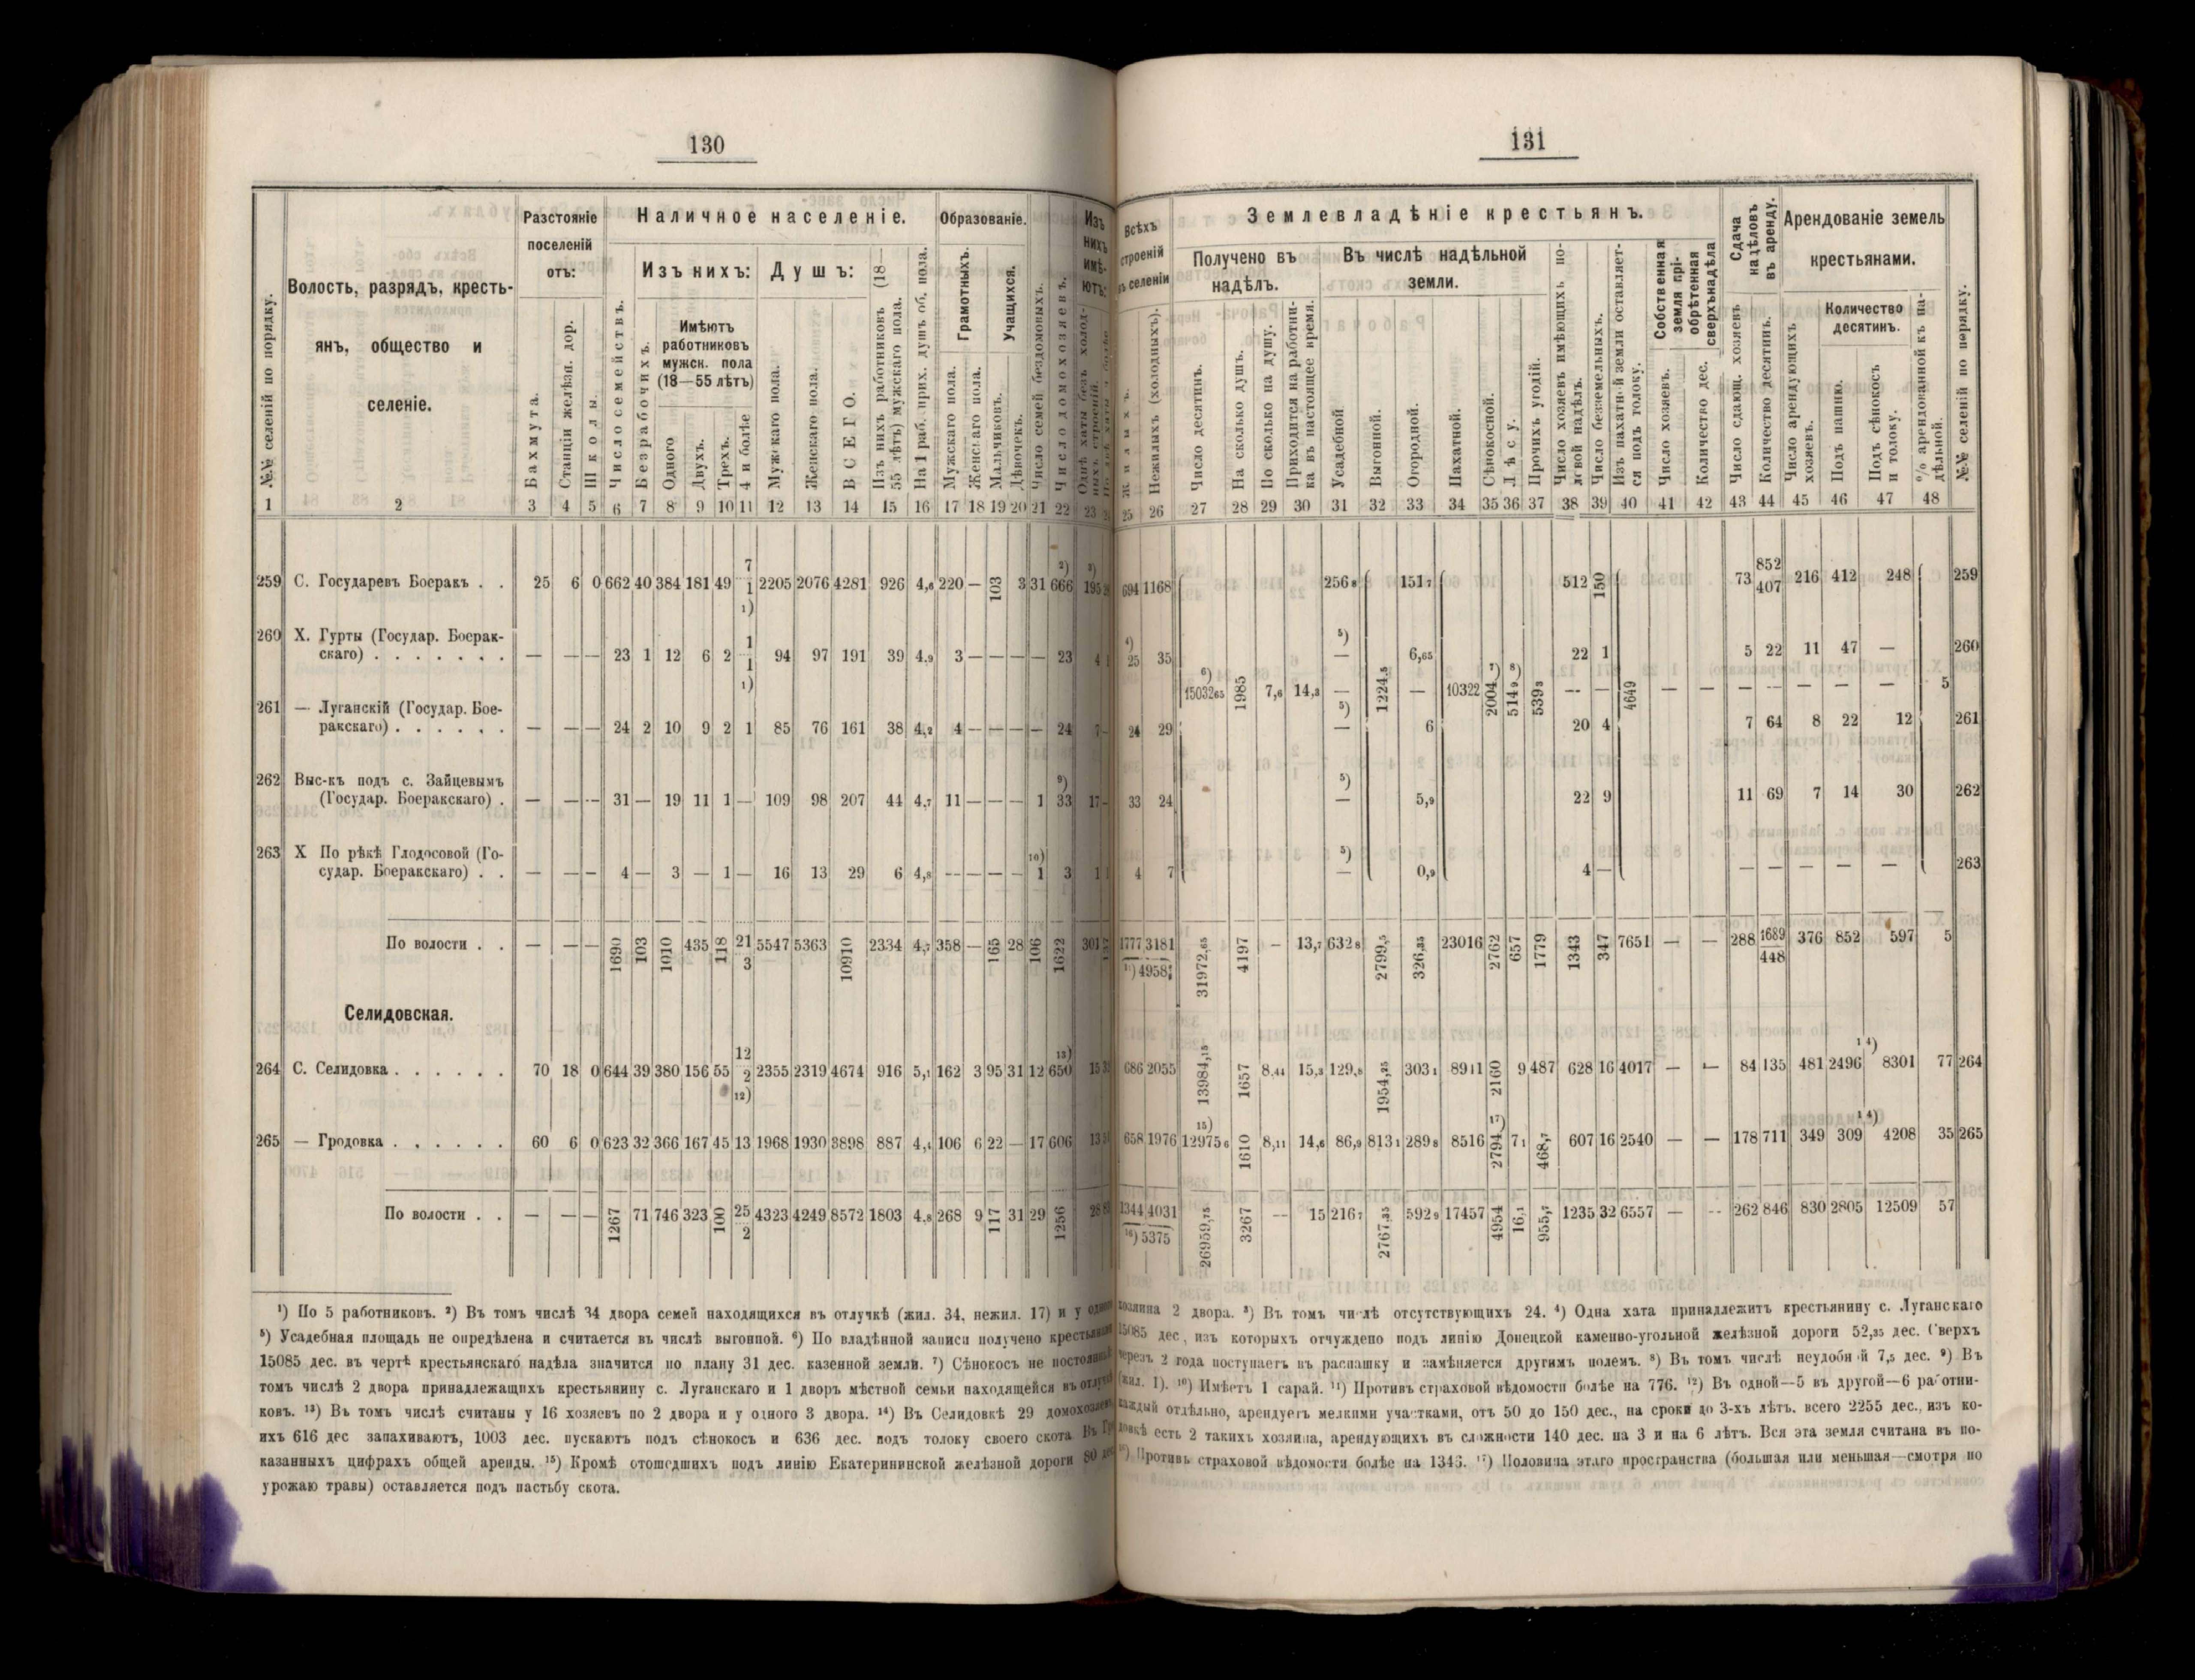 130
№№ селеній по порядку.
Волость, разрядъ, кресть-
янъ, общество и
селеніе.
Разстояніе
поселеній
отъ:
Бахмута.
Станціи желѣзн. дор.
Школы.
Наличное населеніе.
Число семействъ.
Изъ нихъ:
Безрабочихъ.
Имѣютъ
работниковъ
мужск. пола
(18—55 лѣтъ)
Одного
Двухъ.
Трехъ.
4 и болѣе
Душъ:
Мужскаго пола.
Женскаго пола.
ВСЕГО.
Изъ нихъ работниковъ (18—
55 лѣтъ) мужскаго пола.
На 1 раб. прих. душъ об. пола.
Образованіе.
Грамотныхъ.
Учащихся.
Мужскаго пола.
Женскаго пола.
Мальчиковъ.
Дѣвочекъ.
Число семей бездомовыхъ.
Число домохозяевъ.
Изъ
нихъ
имѣ-
ютъ:
1 2 3 4 5 6 7 8 9 10 11 12 13 14 15 16 17 18 19 20 21 22 23
259 С. Государевъ Боеракъ . . 25 6 0 662 40 384 181 49 7 1 ¹) 2205 2076 4281 926 4,6 220 — 103 3 31 ²) 666 ³) 195
260 Х. Гурты (Государ. Боерак-
скаго) . . . . . . . — — — 23 1 12 6 2 1 1 ¹) 94 97 191 39 4,9 3 — — — — 23 4 1
261 — Луганскій (Государ. Бое-
ракскаго) . . . . . . — — — 24 2 10 9 2 1 85 76 161 38 4,2 4 — — — — 24 7 —
262 Выс-къ подъ с. Зайцевымъ
(Государ. Боеракскаго) . — — — 31 — 19 11 1 — 109 98 207 44 4,7 11 — — — 1 ⁹) 33 17 —
263 Х По рѣкѣ Глодосовой (Го-
судар. Боеракскаго) . . — — — 4 — 3 — 1 — 16 13 29 6 4,8 — — — — ¹⁰) 1 3 1 1
По волости . . — — — 1690 103 1010 435 118 21 3 5547 5363 10910 2334 4,7 358 — 165 28 106 1622 301
Селидовская.
264 С. Селидовка . . . . . . 70 18 0 644 39 380 156 55 12 2 ¹²) 2355 2319 4674 916 5,1 162 3 95 31 12 ¹³) 650 15
265 — Гродовка . . . . . . 60 6 0 623 32 366 167 45 13 1968 1930 3898 887 4,4 106 6 22 — 17 606 13
По волости . . — — — 1267 71 746 323 100 25 2 4323 4249 8572 1803 4,8 268 9 117 31 29 1256 28
¹) По 5 работниковъ. ²) Въ томъ числѣ 34 двора семей находящихся въ отлучкѣ (жил. 34, нежил. 17) и у одного
⁵) Усадебная площадь не опредѣлена и считается въ числѣ выгонной. ⁶) По владѣнной записи получено крестьянами
15085 дес. въ чертѣ крестьянскаго надѣла значится по плану 31 дес. казенной земли. ⁷) Сѣнокосъ не постоянный
томъ числѣ 2 двора принадлежащихъ крестьянину с. Луганскаго и 1 дворъ мѣстной семьи находящейся въ отлучкѣ
ковъ. ¹³) Въ томъ числѣ считаны у 16 хозяевъ по 2 двора и у одного 3 двора. ¹⁴) Въ Селидовкѣ 29 домохозяевъ,
ихъ 616 дес запахиваютъ, 1003 дес. пускаютъ подъ сѣнокосъ и 636 дес. подъ толоку своего скота. Въ Гро
казанныхъ цифрахъ общей аренды. ¹⁵) Кромѣ отошедшихъ подъ линію Екатерининской желѣзной дороги 80 дес.
урожаю травы) оставляется подъ пастьбу скота.
131
Всѣхъ
строеній
въ селеніи
Жилыхъ.
Нежилыхъ (холодныхъ).
Землевладѣніе крестьянъ.
Получено въ
надѣлъ.
Число десятинъ.
На сколько душъ.
По сколько на душу.
Приходится на работни-
ка въ настоящее время.
Въ числѣ надѣльной
земли.
Усадебной
Выгонной.
Огородной.
Пахатной.
Сѣнокосной.
Лѣсу.
Прочихъ угодій.
Число хозяевъ имѣющихъ по-
левой надѣлъ.
Число безземельныхъ.
Изъ пахатн-й земли оставляет-
ся подъ толоку.
Собственная
земля прі-
обрѣтенная
сверхънадѣла
Число хозяевъ.
Количество дес.
Сдача
надѣловъ
въ аренду.
Число сдающ. хозяевъ
Количество десятинъ.
Арендованіе земель
крестьянами.
Число арендующихъ
хозяевъ.
Количество
десятинъ.
Подъ пашню.
Подъ сѣнокосъ
и толоку.
% арендованной къ на-
дѣльной.
№№ селеній по порядку.
25 26 27 28 29 30 31 32 33 34 35 36 37 38 39 40 41 42 43 44 45 46 47 48
694 1168 256 8 151 7 512 150 73 852 407 216 412 248 259
⁴) 25 35 ⁵) — 6,65 22 1 5 22 11 47 — 260
⁶) 15032 65 1985 7,6 14,3 — 1224,5 — 10322 2004 ⁷) 514 9 ⁸) 539 3 — — 4649 — — — — — — — 5
24 29 ⁵) — 6 20 4 7 64 8 22 12 261
33 24 ⁵) — 5,9 22 9 11 69 7 14 30 262
4 7 ⁵) — 0,9 4 — — — — — — 263
1777 3181 31972,65 4197 — 13,7 632 8 2799,5 326,35 23016 2762 657 1779 1343 347 7651 — — 288 1689 448 376 852 597 5
¹¹) 4958
686 2055 13984,15 1657 8,44 15,3 129,8 1954,25 303 1 8911 2160 9 487 628 16 4017 — — 84 135 481 2496 ¹⁴) 8301 77 264
658 1976 ¹⁵) 12975 6 1610 8,11 14,6 86,9 813 1 289 8 8516 2794 ¹⁷) 7 1 468,7 607 16 2540 — — 178 711 349 309 ¹⁴) 4208 35 265
1344 4031 26959,75 3267 — 15 216 7 2767,35 592 9 17457 4954 16,1 955,7 1235 32 6557 — — 262 846 830 2805 12509 57
¹⁶) 5375
хозяина 2 двора. ³) Въ томъ числѣ отсутствующихъ 24. ⁴) Одна хата принадлежитъ крестьянину с. Луганскаго
15085 дес., изъ которыхъ отчуждено подъ линію Донецкой каменно-угольной желѣзной дороги 52,35 дес. Сверхъ
черезъ 2 года поступаетъ въ распашку и замѣняется другимъ полемъ. ⁸) Въ томъ числѣ неудобной 7,5 дес. ⁹) Въ
(жил. 1). ¹⁰) Имѣетъ 1 сарай. ¹¹) Противъ страховой вѣдомости болѣе на 776. ¹²) Въ одной—5 въ другой—6 работни-
каждый отдѣльно, арендуетъ мелкими участками, отъ 50 до 150 дес., на сроки до 3-хъ лѣтъ. всего 2255 дес., изъ ко-
довкѣ есть 2 такихъ хозяина, арендующихъ въ сложности 140 дес. на 3 и на 6 лѣтъ. Вся эта земля считана въ по-
¹⁶) Противъ страховой вѣдомости болѣе на 1346. ¹⁷) Половина этаго пространства (большая или меньшая—смотря по